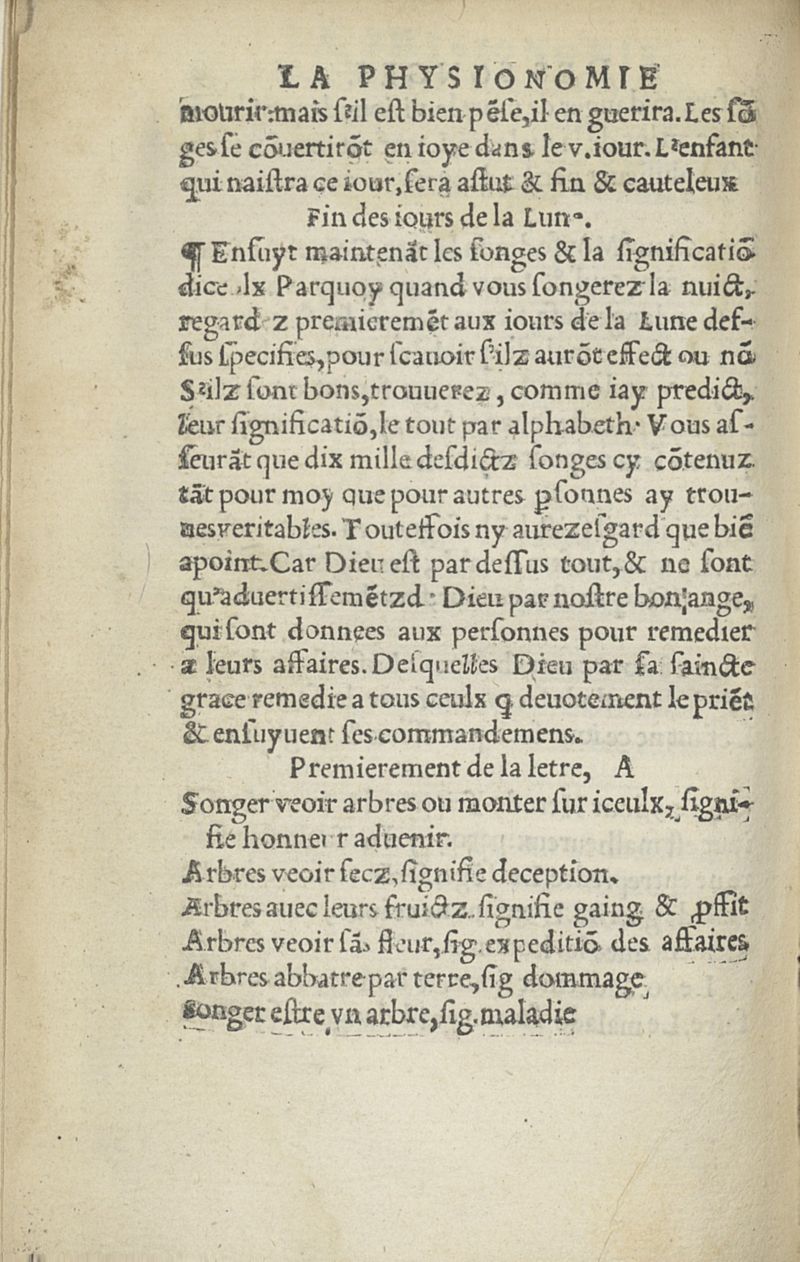 LA PHYSIONOMIE
mourir: mais s'il est bien pẽse, il en guerira. Les sõ
ges se cõuertirõt en ioye dans le v. iour. L'enfant
qui naistra ce iour, sera astut & fin & cauteleux
Fin des iours de la Lune.
¶ Ensuyt maintenãt les songes & la significatiõ
diceulx Parquoy quand vous songerez la nuict,
regardez premieremẽt aux iours de la Lune des-
sus specifies, pour scauoir s'ilz aurõt effect ou nõ
S'ilz sont bons, trouuerez, comme iay predict,
leur significatiõ, le tout par alphabeth. Vous as-
seurãt que dix mille desdictz songes cy cõtenuz
tãt pour moy que pour autres ꝑsonnes ay trou-
ues veritables. Touteffois ny aurez esgard que biẽ
apoint. Car Dieu est par dessus tout, & ne sont
qu'aduertissemẽtz d' Dieu par nostre bon ange,
qui sont donnees aux personnes pour remedier
a leurs affaires. Desquelles Dieu par sa saincte
grace remedie a tous ceulx q̃ deuotement le priẽt
& ensuyuent ses commandemens.
Premierement de la letre, A
Songer veoir arbres ou monter sur iceulx, signi-
fie honneur aduenir.
Arbres veoir secz, signifie deception.
Arbres auec leurs fruictz signifie gaing & ꝓffit
Arbres veoir sãs fleur, sig. expeditiõ des affaires
Arbres abbatre par terre, sig dommage
Songer estre vn arbre, sig. maladie